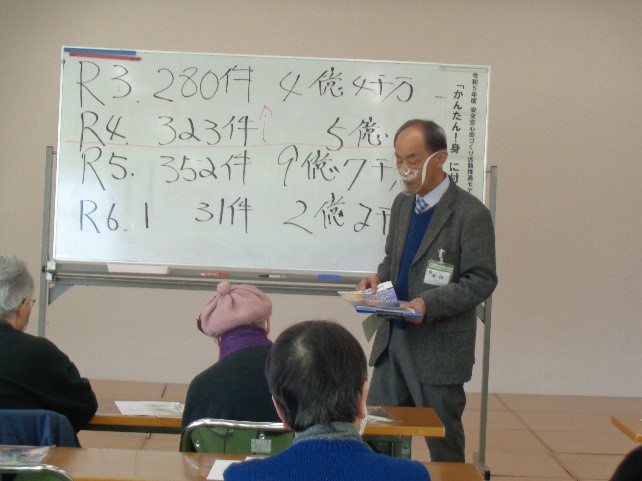 R3. 280件 4億4千万
R4. 323件 5億
R5. 352件 9億7千万
R6.1 31件 2億2千
令和5年度 安全安心まちづくり活動推進モデ
「かんたん！身